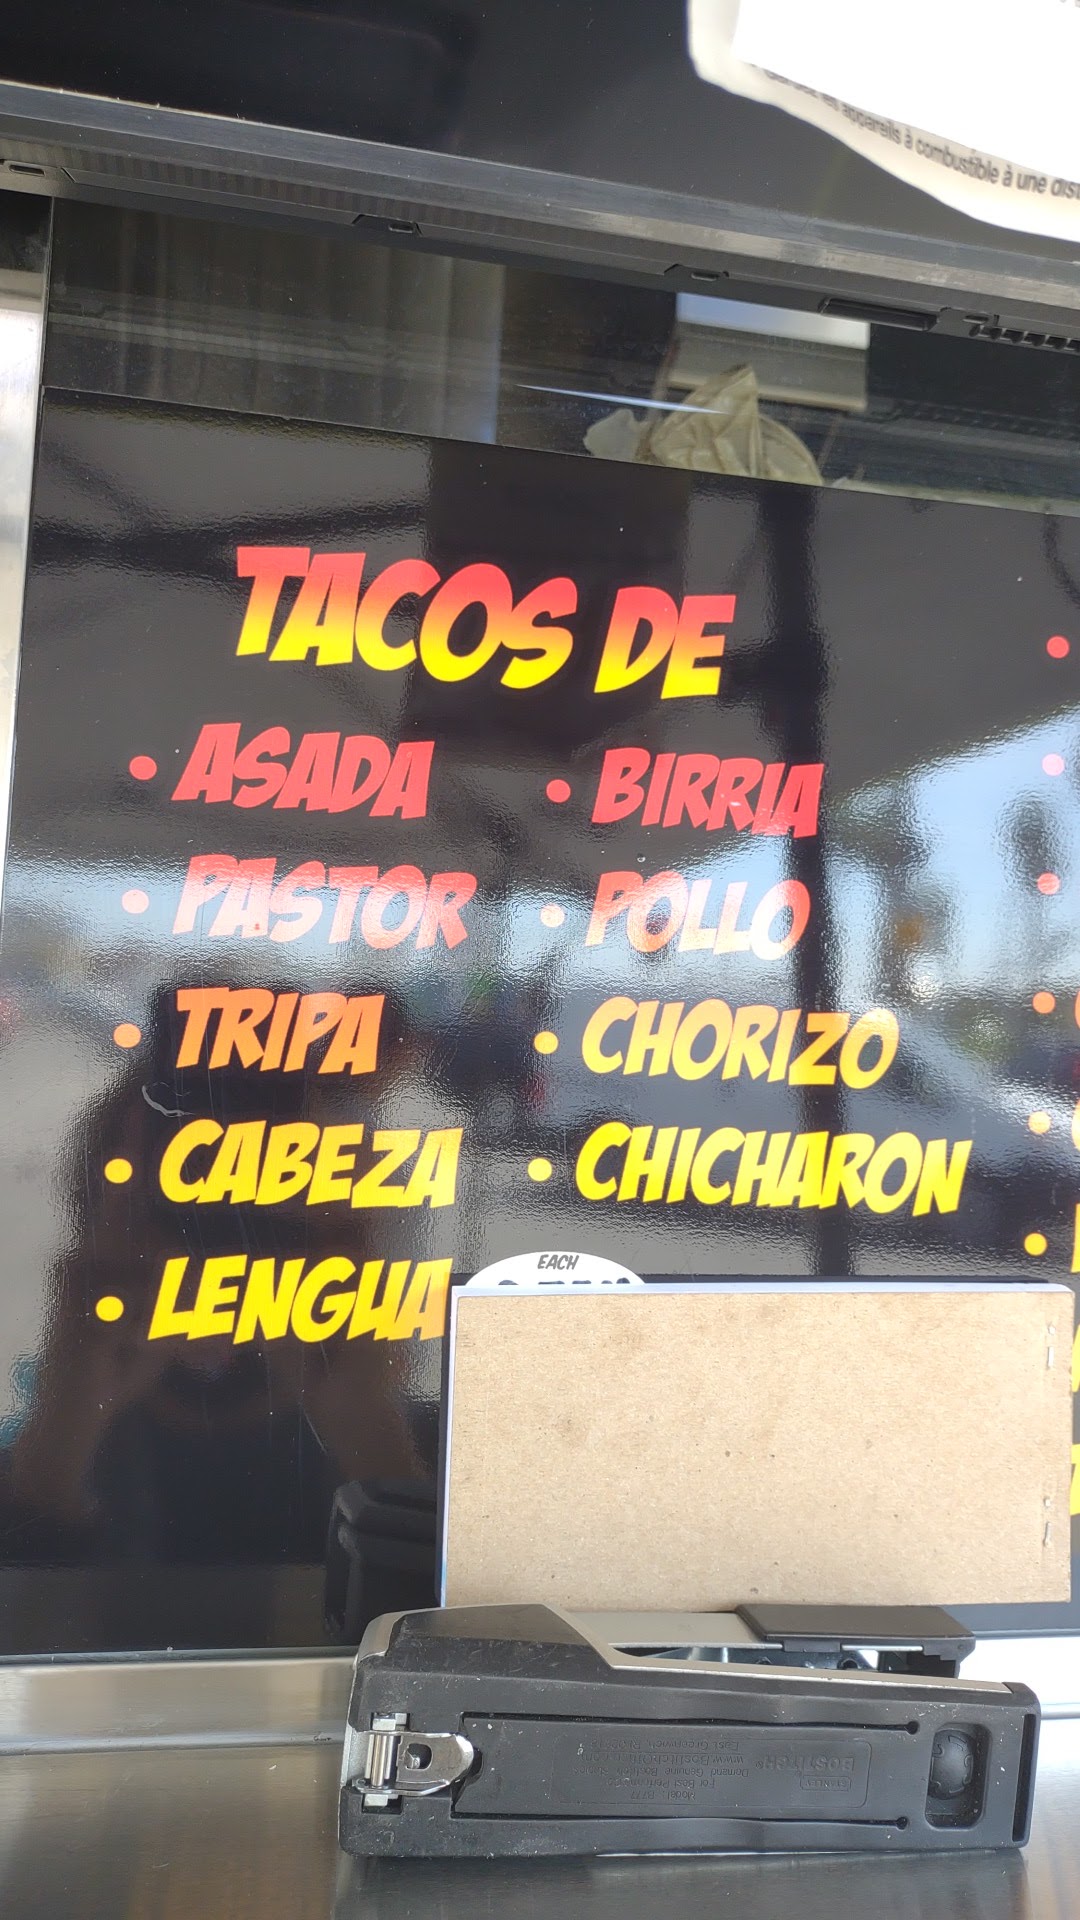 appareils à combustible à une
TACOS DE
• ASADA
• PASTOR
• TRIPA
• CABEZA
• LENGUA
• BIRRIA
• POLLO
• CHORIZO
• CHICHARON
EACH
STANLEY
BOSTITCH®